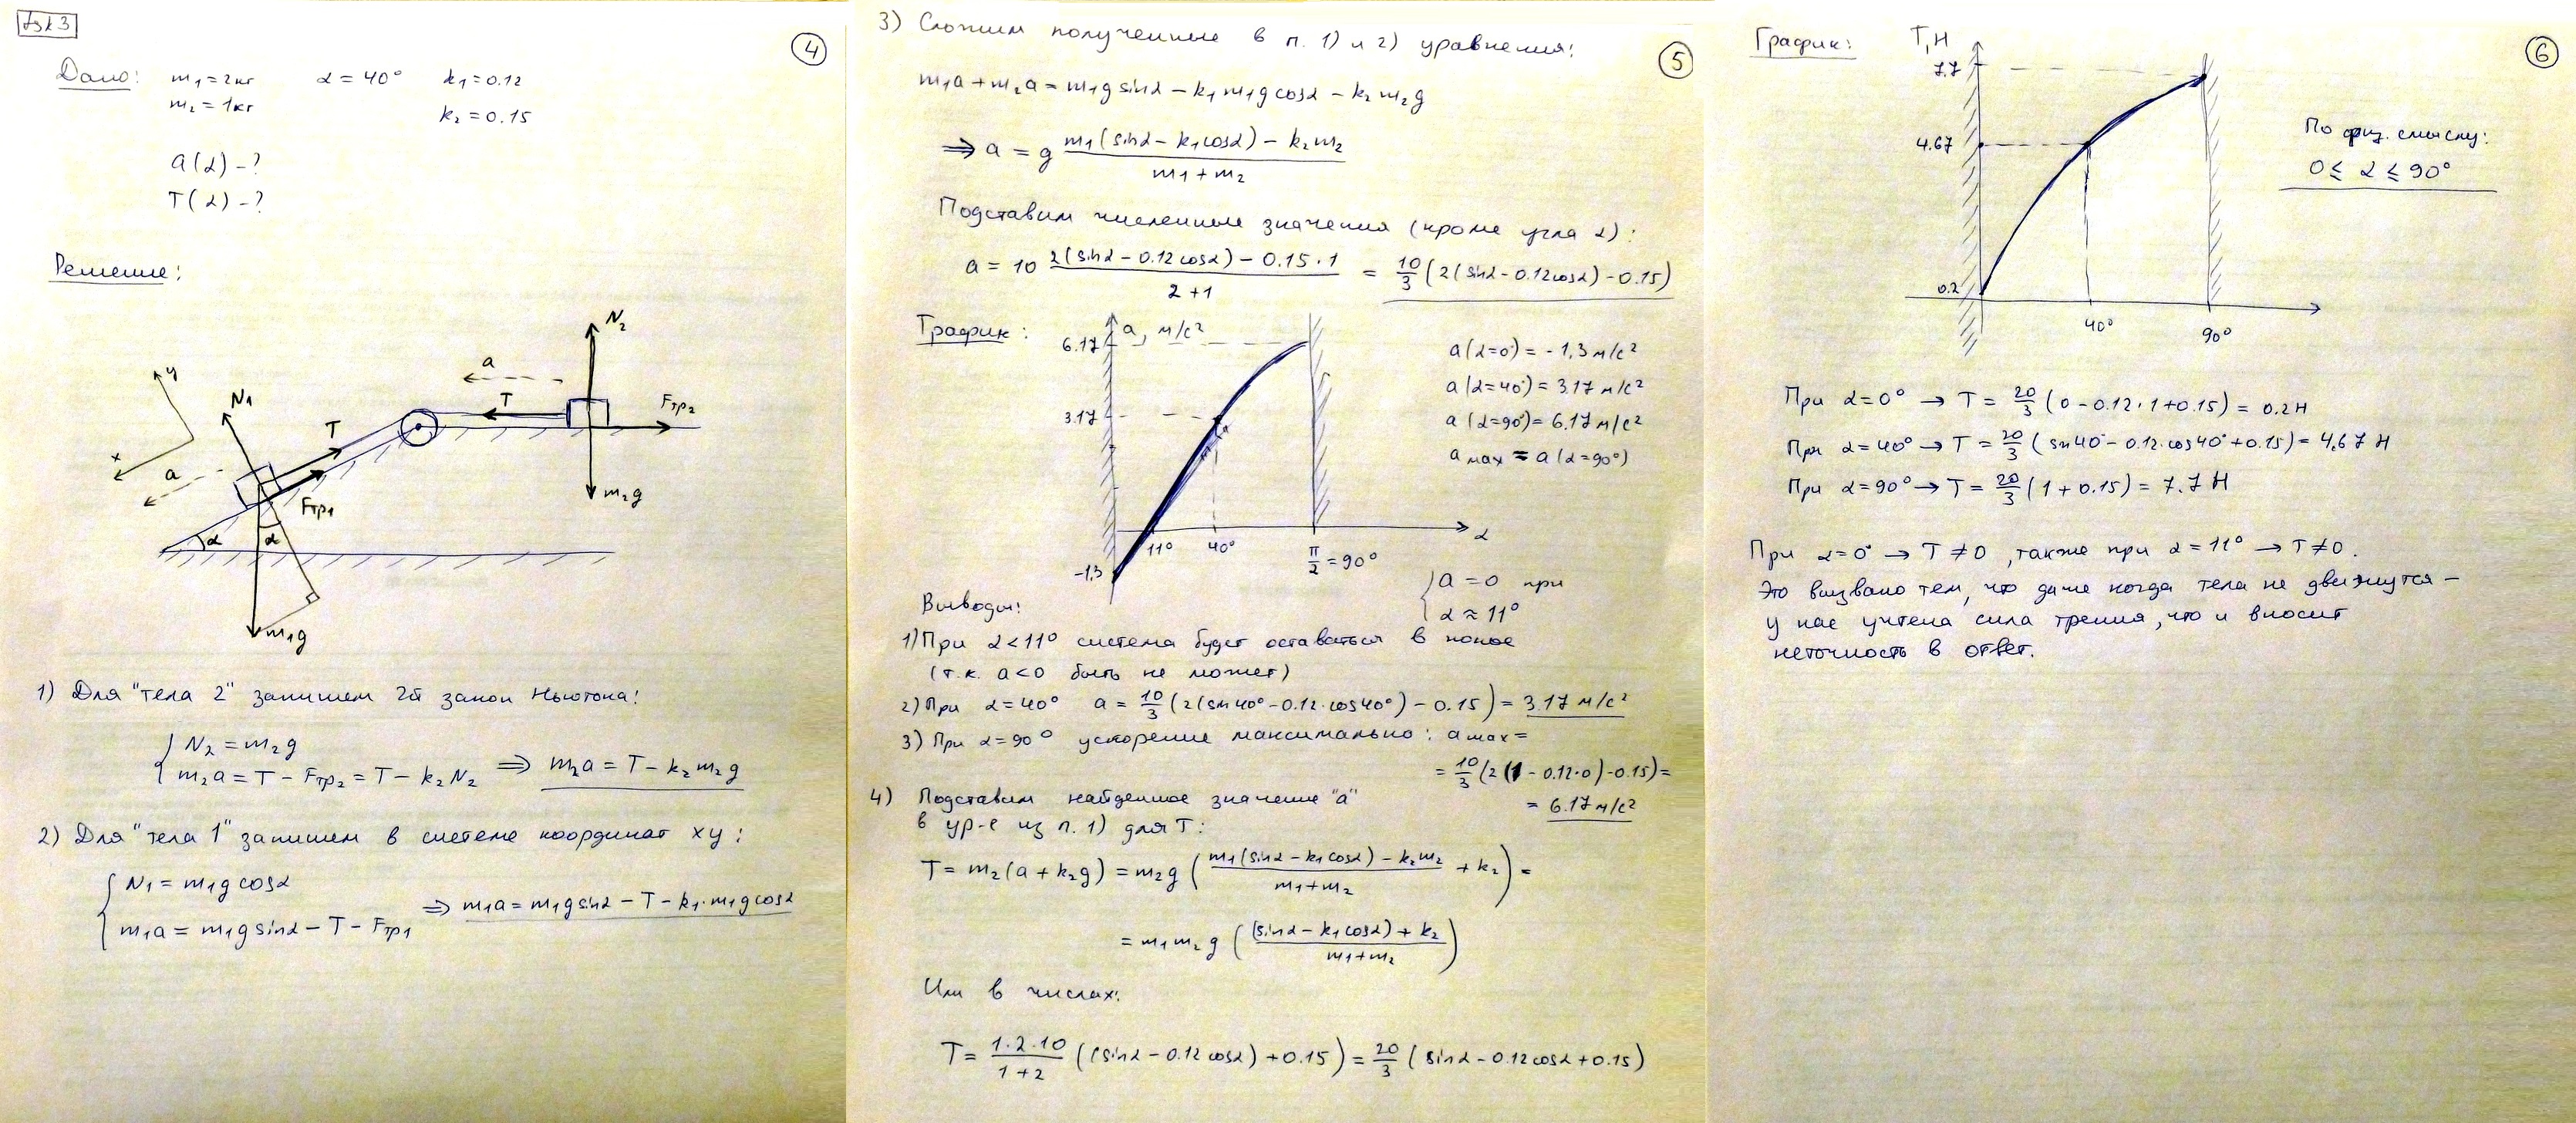 Дз№3
4
Дано: m₁=2кг α=40° k₁=0.12
m₂=1кг k₂=0.15
a(α)-?
T(α)-?
Решение:
y
x
a
N₁
T
Fтр₁
α
α
m₁g
a
T
N₂
Fтр₂
m₂g
1) Для "тела 2" запишем 2й закон Ньютона:
{ N₂ = m₂g
m₂a = T - Fтр₂ = T - k₂N₂ ⟹ m₂a = T - k₂m₂g
2) Для "тела 1" запишем в системе координат xy:
{ N₁ = m₁g cosα
m₁a = m₁g sinα - T - Fтр₁ ⟹ m₁a = m₁g sinα - T - k₁·m₁g cosα
5
3) Сложим полученные в п. 1) и 2) уравнения:
m₁a + m₂a = m₁g sinα - k₁m₁g cosα - k₂m₂g
⟹ a = g (m₁(sinα - k₁cosα) - k₂m₂)/(m₁+m₂)
Подставим численные значения (кроме угла α):
a = 10 (2(sinα - 0.12cosα) - 0.15·1)/(2+1) = 10/3 (2(sinα - 0.12cosα) - 0.15)
График:
a, м/с²
6.17
3.17
-1,3
11°
40°
π/2 = 90°
α
a(α=0°) = -1,3 м/с²
a(α=40°) = 3.17 м/с²
a(α=90°) = 6.17 м/с²
a max = a(α=90°)
{ a = 0 при
α ≈ 11°
Выводы:
1) При α<11° система будет оставаться в покое
(т.к. a<0 быть не может)
2) При α=40° a = 10/3 (2(sin40° - 0.12·cos40°) - 0.15) = 3.17 м/с²
3) При α=90° ускорение максимально: a max =
= 10/3 (2(1 - 0.12·0) - 0.15) =
= 6.17 м/с²
4) Подставим найденное значение "a"
в ур-е из п. 1) для T:
T = m₂(a + k₂g) = m₂g ((m₁(sinα - k₁cosα) - k₂m₂)/(m₁+m₂) + k₂) =
= m₁m₂g (((sinα - k₁cosα) + k₂)/(m₁+m₂))
Или в числах:
T = (1·2·10)/(1+2) ((sinα - 0.12cosα) + 0.15) = 20/3 (sinα - 0.12cosα + 0.15)
6
График:
T, Н
7.7
4.67
0.2
40°
90°
По физ. смыслу:
0 ≤ α ≤ 90°
При α=0° → T = 20/3 (0 - 0.12·1 + 0.15) = 0.2 Н
При α=40° → T = 20/3 (sin40° - 0.12·cos40° + 0.15) = 4.67 Н
При α=90° → T = 20/3 (1 + 0.15) = 7.7 Н
При α=0° → T ≠ 0, также при α=11° → T≠0.
Это вызвано тем, что даже когда тела не движутся -
у нас учтена сила трения, что и вносит
неточность в ответ.